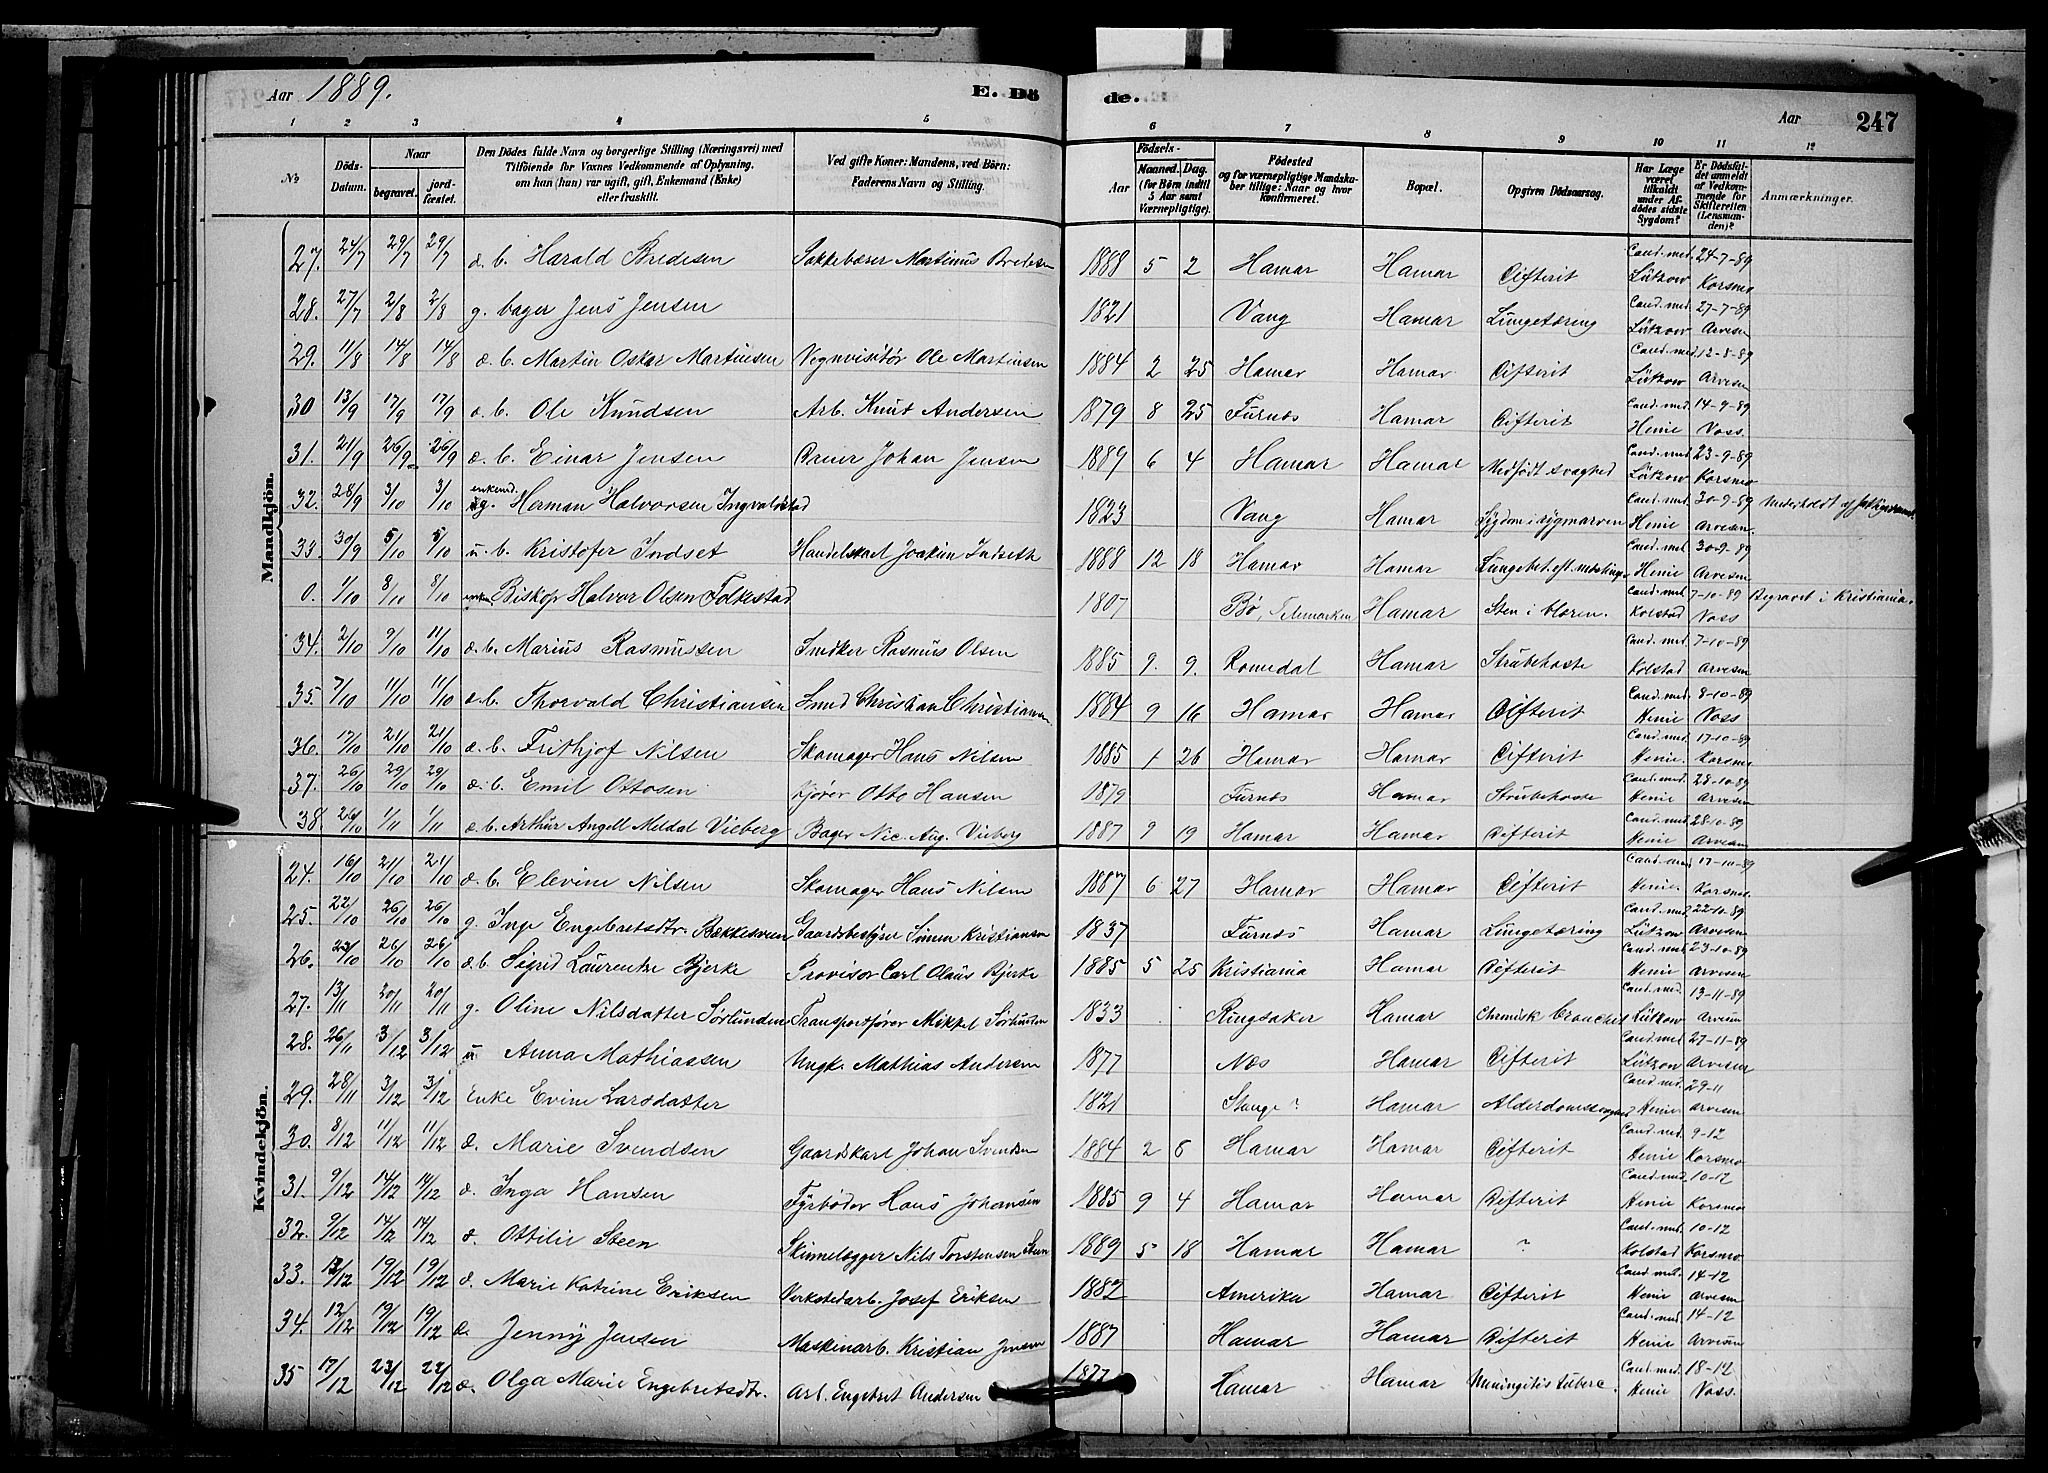 Aar 1889. E. Dö de. Aar 247
1 2 3 4 5 6 7 8 9 10 11 12
№ Döds-Datum. Naar begravet. jord-fæstet. Den Dödes fulde Navn og borgerlige Stilling (Næringsvei) med Tilföiende for Voxnes Vedkommende af Oplysning, om han (hun) var ugift, gift, Enkemand (Enke) eller fraskilt. Ved gifte Koner: Mandens, ved Börn: Faderens Navn og Stilling. Födsels- Aar Maaned. Dag. (for Börn indtil 5 Aar samt Værnepligtige). Födested og for værnepligtige Mandska-ber tillige: Naar og hvor konfirmeret. Bopæl. Opgiven Dödsaarsag. Har Læge været tilkaldt under Af-dödes sidste Sygdom? Er Dödsfal-det anmeldt af Vedkom-mende for Skifteretten (Lensman-den)? Anmærkninger.
Mandkjön.
27. 24/7 29/7 29/7 æ. b. Harald Bredesen Sakkebærer Martinus Bredesen 1888 5 2 Hamar Hamar Difterit Cand. med. Lützow 24-7-89 Korsmo
28. 27/7 2/8 2/8 g. bager Jens Jensen 1821 Vang Hamar Lungetæring Cand. med. Lützow 27-7-89 Arvesen
29. 11/8 14/8 14/8 æ. b. Martin Oskar Martinsen Vognvisitør Ole Martinsen 1884 2 25 Hamar Hamar Difterit Cand. med. Lützow 12-8-89 Arvesen
30 13/9 17/9 17/9 æ. b. Ole Knudsen Arb. Knut Andersen 1879 8 25 Furnæs Hamar Difterit Cand. med. Henie 14-9-89 Voss
31. 21/9 26/9 26/9 æ. b. Einar Jensen Dreier Johan Jensen 1889 6 4 Hamar Hamar Medfödt svaghed Cand. med. Lützow 23-9-89 Korsmo
32. 28/9 3/10 3/10 enkemd. Herman Halvorsen Ingvaldstad 1823 Vang Hamar Sygdom i rygmarven Cand. med. Henie 30-9-89 Arvesen. Underholdt af
33. 30/9 5/10 5/10 u. b. Kristofer Indset Joakim Indseth 1888 12 18 Hamar Hamar Lungebet. eft. mæslinger Cand. med. Henie 30-9-89 Arvesen
0. 1/10 8/10 8/10 Biskop Halvor Olsen Folkestad 1807 Bø, Telemarken Hamar Sten i blæren. Cand. med. Kolstad 7-10-89 Voss Begravet i Kristiania.
34. 2/10 9/10 11/10 æ. b. Marius Rasmussen Snedker Rasmus Olsen 1885 9. 9. Romedal Hamar Strubehoste Cand. med. Kolstad 7-10-89 Arvesen
35. 7/10 11/10 11/10 æ. b. Thorvald Christiansen Smed Christian Christiansen 1884 9 16 Hamar Hamar Difterit Cand. med. Henie 8-10-89 Voss
36. 17/10 21/10 21/10 æ. b. Frithjof Nilsen Skomager Hans Nilsen 1885 1 26 Hamar Hamar Difterit Cand. med. Henie. 17-10-89 Korsmo
37. 26/10 29/10 29/10 æ. b. Emil Ottosen Kjører Otto Hansen 1879 Furnæs Hamar Strubehoste Cand. med. Henie 28-10-89 Arvesen
38 26/10 1/11 1/11 æ. b. Arthur Angell Meldal Vieberg Bager Nic. Aug. Vieberg 1887 9 19 Hamar Hamar Difterit Cand. med. Henie 28-10-89 Arvesen
Kvindekjön.
24. 16/10 21/10 21/10 æ. b. Elevine Nilsen Skomager Hans Nilsen 1887 6 27 Hamar Hamar Difterit Cand. med. Henie. 17-10-89 Korsmo.
25. 22/10 26/10 26/10 g. Inge Engebretsdtr. Bækkesveen Gaardsbestyrer Simen Kristiansen 1837 Furnæs Hamar Lungetæring Cand. med. Lützow 22-10-89 Arvesen
26. 23/10 26/10 26/10 æ. b. Sigrid Laurentze Bjerke Provisor Carl Olaus Bjerke 1885 5 25 Kristiania Hamar Difterit Cand. med. Henie 23-10-89 Arvesen
27. 13/11 20/11 20/11 g. Oline Nilsdatter Sørlunden Transportfører Mikkel Sørlunden 1833 Ringsaker Hamar Chronisk bronchit Cand. med. Lützow 13-11-89 Arvesen
28. 26/11 3/12 3/12 u Anna Mathiassen Ungk. Mathias Andersen 1877 Næs Hamar Difterit Cand. med. Lützow 27-11-89 Arvesen
29. 28/11 3/12 3/12 Enke Evine Larsdatter 1821 Stange? Hamar Alderdomssvaghed Cand. med. Henie 29-11 Arvesen
30. 8/12 11/12 11/12 æ. Marie Svendsen Gaardskarl Johan Svendsen 1884 2 6 Hamar Hamar Difterit Cand. med. Henie 9-12 Korsmo
31. 9/12 14/12 14/12 æ. Inga Hansen Fyrbøder Hans Johansen 1885 9 4 Hamar Hamar Difterit Cand. med. Henie 10-12 Korsmo
32. 9/12 14/12 14/12 æ. Ottilie Steen Skinnelægger Nils Torstensen Steen 1889 5 18 Hamar Hamar ? Cand. med. Kolstad 10-12 Korsmo
33. 12/12 19/12 19/12 æ. Marie Katrine Eriksen Verkstedarb. Josef Eriksen 1882 Amerika Hamar Difterit Cand. med. Henie 14-12 Arvesen
34. 12/12 19/12 19/12 æ. Jenny Jensen Maskinarb. Kristian Jensen 1887 Hamar Hamar Difterit Cand. med. Henie 14-12 Arvesen
35 17/12 23/12 22/12 æ. Olga Marie Engebretsdtr. Arb. Engebret Andersen 1877 Hamar Hamar Meningitis tuberc. Cand. med. Henie 18-12 Voss.